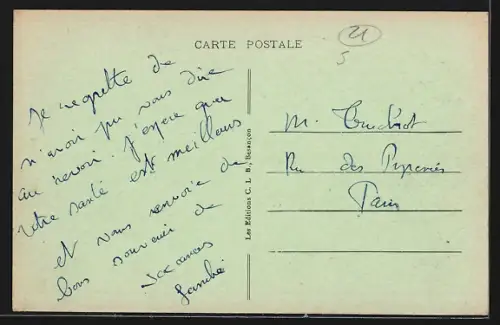 CARTE POSTALE
21
5
Je regrette de
n'avoir pu vous dire
au revoir. J'espère que
votre santé est meilleure
et vous envoie de
bons souvenirs de
vacances
Les Editions C. L. B., Besançon
M.
Rue des Pyrénées
Paris